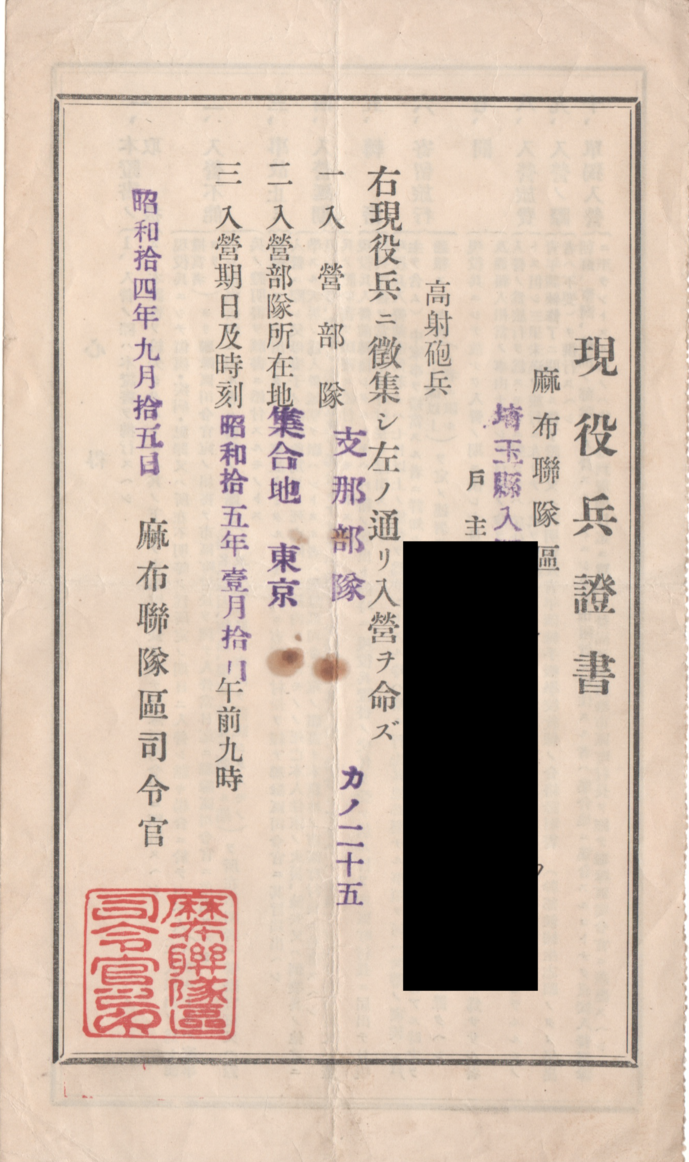 現役兵證書
麻布聯隊區
埼玉縣入
戸主
高射砲兵
右現役兵ニ徴集シ左ノ通リ入營ヲ命ズ
一 入營部隊 支那部隊 カノ二十五
二 入營部隊所在地 集合地 東京
三 入營期日及時刻 昭和拾五年壹月拾日午前九時
昭和拾四年九月拾五日 麻布聯隊區司令官
麻布聯隊區
司令官之印